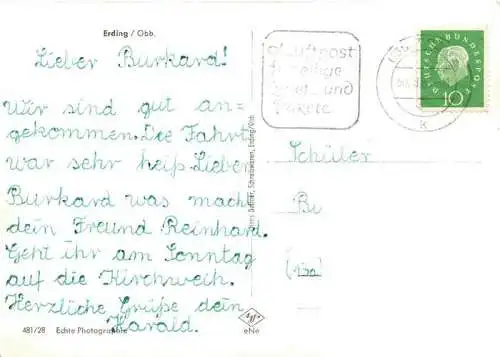 Erding / Obb.
Lieber Burkard!
Wir sind gut an=
gekommen. Die Fahrt
war sehr heiß. Lieber
Burkard was macht
dein Freund Reinhard.
Geht ihr am Sonntag
auf die Kirchweih.
Herzliche Grüße dein
Harald.
481/28 Echte Photographie
Luftpost
eilige
und
Pakete
DEUTSCHE BUNDESPOST
10
k
Schüler
Bu
eNe